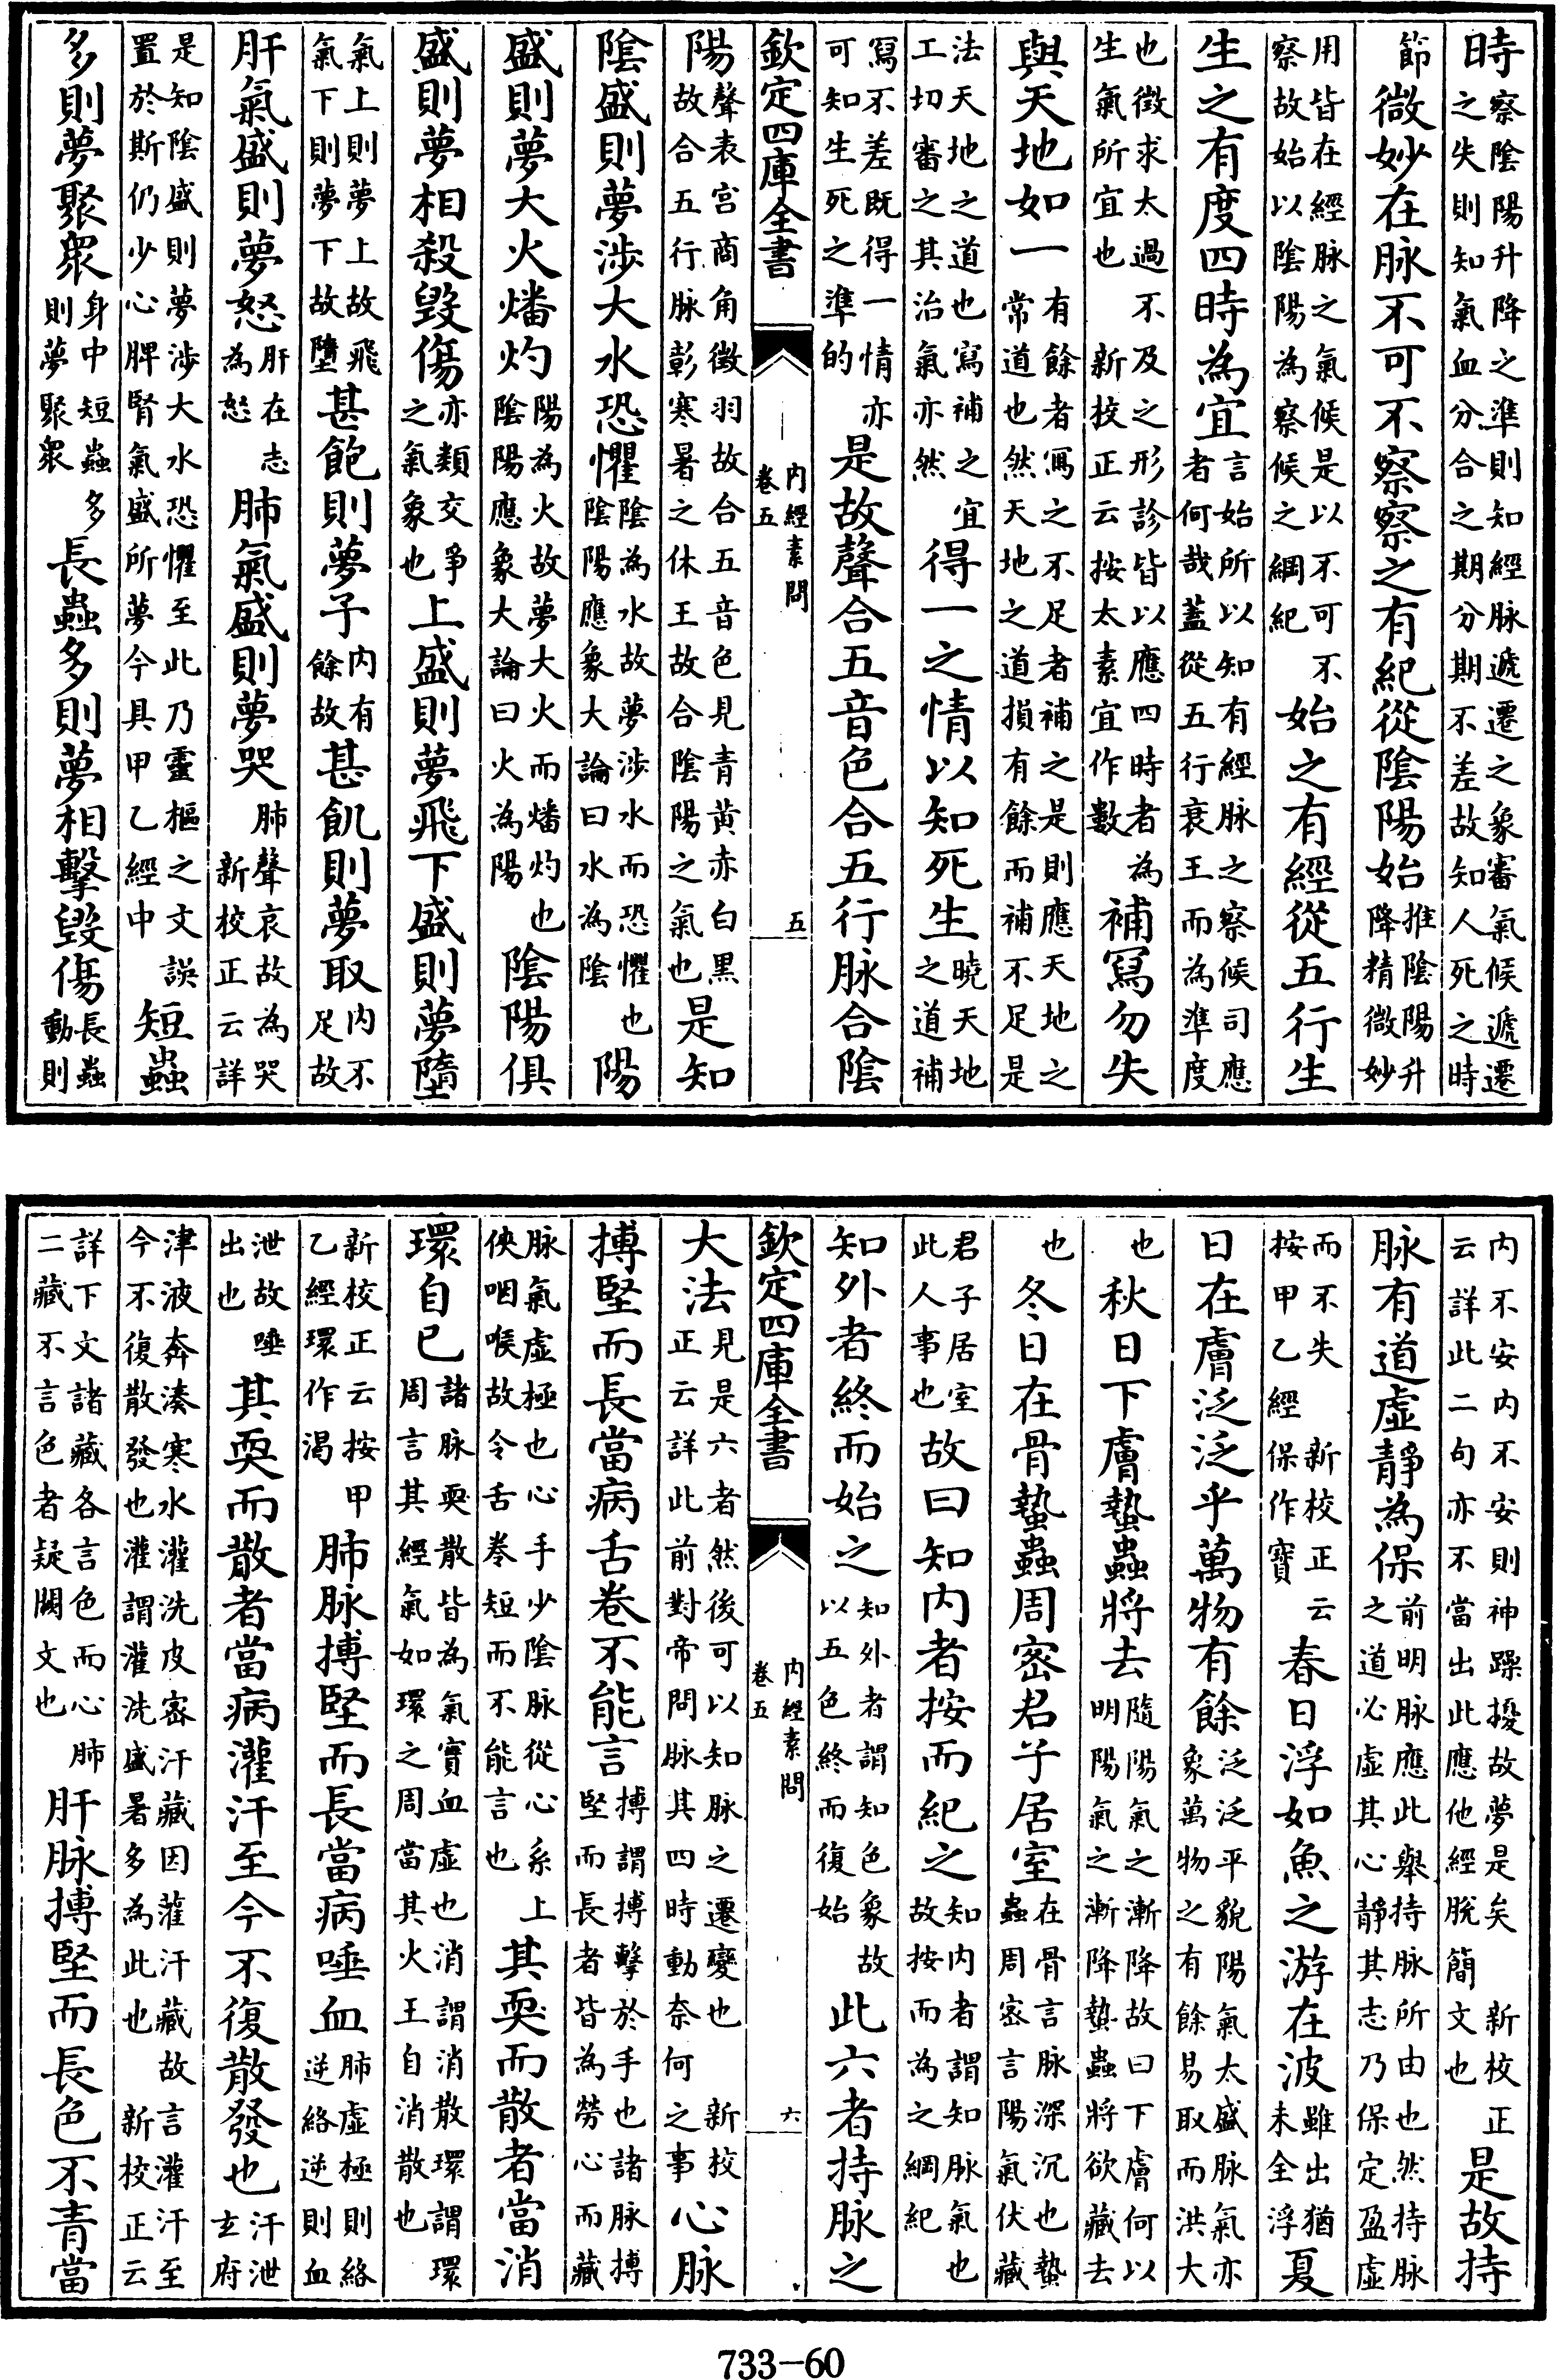 時察陰陽升降之準則知經脉遞遷之象審氣候遞遷之失則知氣血分合之期分期不差故知人死之時
節微妙在脉不可不察察之有紀從陰陽始推陰陽升降精微妙
用皆在經脉之氣候是以不可不察故始以陰陽為察候之綱紀始之有經從五行生
生之有度四時為宜言始所以知有經脉之察候司應者何哉蓋從五行衰王而為準度
也徵求太過不及之形診皆以應四時者為生氣所宜也新校正云按太素宜作數補冩勿失
與天地如一有餘者冩之不足者補之是則應天地之常道也然天地之道損有餘而補不足是
法天地之道也冩補之宜工切審之其治氣亦然得一之情以知死生曉天地之道補
冩不差既得一情亦可知生死之準的是故聲合五音色合五行脉合陰
欽定四庫全書 內經素問 卷五 五
陽聲表宫商角徵羽故合五音色見青黄赤白黑故合五行脉彰寒暑之休王故合陰陽之氣也是知
陰盛則夢涉大水恐懼陰為水故夢涉水而恐懼也陰陽應象大論曰水為陰陽
盛則夢大火燔灼陽為火故夢大火而燔灼也陰陽應象大論曰火為陽陰陽俱
盛則夢相殺毀傷亦類交爭之氣象也上盛則夢飛下盛則夢墮
氣上則夢上故飛氣下則夢下故墮甚飽則夢予內有餘故甚飢則夢取內不足故
肝氣盛則夢怒肝在志為怒肺氣盛則夢哭肺聲哀故為哭新校正云詳
是知陰盛則夢涉大水恐懼至此乃靈樞之文誤置於斯仍少心脾腎氣盛所夢今具甲乙經中短蟲
多則夢聚衆身中短蟲多則夢聚衆長蟲多則夢相擊毀傷長蟲動則
內不安內不安則神躁擾故夢是矣新校正云詳此二句亦不當出此應他經脫簡文也是故持
脉有道虛靜為保前明脉應此舉持脉所由也然持脉之道必虛其心靜其志乃保定盈虛
而不失新校正云按甲乙經保作寶春日浮如魚之游在波雖出猶未全浮夏
日在膚泛泛乎萬物有餘泛泛平貌陽氣太盛脉氣亦象萬物之有餘易取而洪大
也秋日下膚蟄蟲將去隨陽氣之漸降故曰下膚何以明陽氣之漸降蟄蟲將欲藏去
也冬日在骨蟄蟲周密君子居室在骨言脉深沉也蟄蟲周密言陽氣伏藏
君子居室此人事也故曰知內者按而紀之知內者謂知脉氣也故按而為之綱紀
知外者終而始之知外者謂知色象故以五色終而復始此六者持脉之
欽定四庫全書 內經素問 卷五 六
大法見是六者然後可以知脉之遷變也新校正云詳此前對帝問脉其四時動奈何之事心脉
搏堅而長當病舌卷不能言搏謂搏擊於手也諸脉搏堅而長者皆為勞心而藏
脉氣虛極也心手少陰脉從心系上俠咽喉故令舌卷短而不能言也其耎而散者當消
環自已諸脉耎散皆為氣實血虛也消謂消散環謂環周言其經氣如環之周當其火王自消散也
新校正云按甲乙經環作渴肺脉搏堅而長當病唾血肺虛極則絡逆絡逆則血
泄故唾出也其耎而散者當病灌汗至今不復散發也汗泄玄府
津液奔湊寒水灌洗皮密汗藏因灌汗藏故言灌汗至今不復散發也灌謂灌洗盛暑多為此也新校正云
詳下文諸藏各言色而心肺二藏不言色者疑闕文也肝脉搏堅而長色不青當
733-60